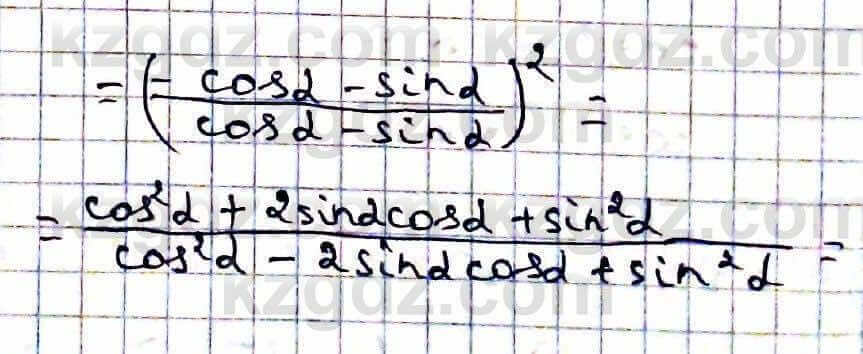 kzgdz.com kzgdz.com
= (- cosα - sinα / cosα - sinα)² =
kzgdz.com
= cos²α + 2sinαcosα + sin²α / cos²α - 2sinαcosα + sin²α =
kzgdz.com